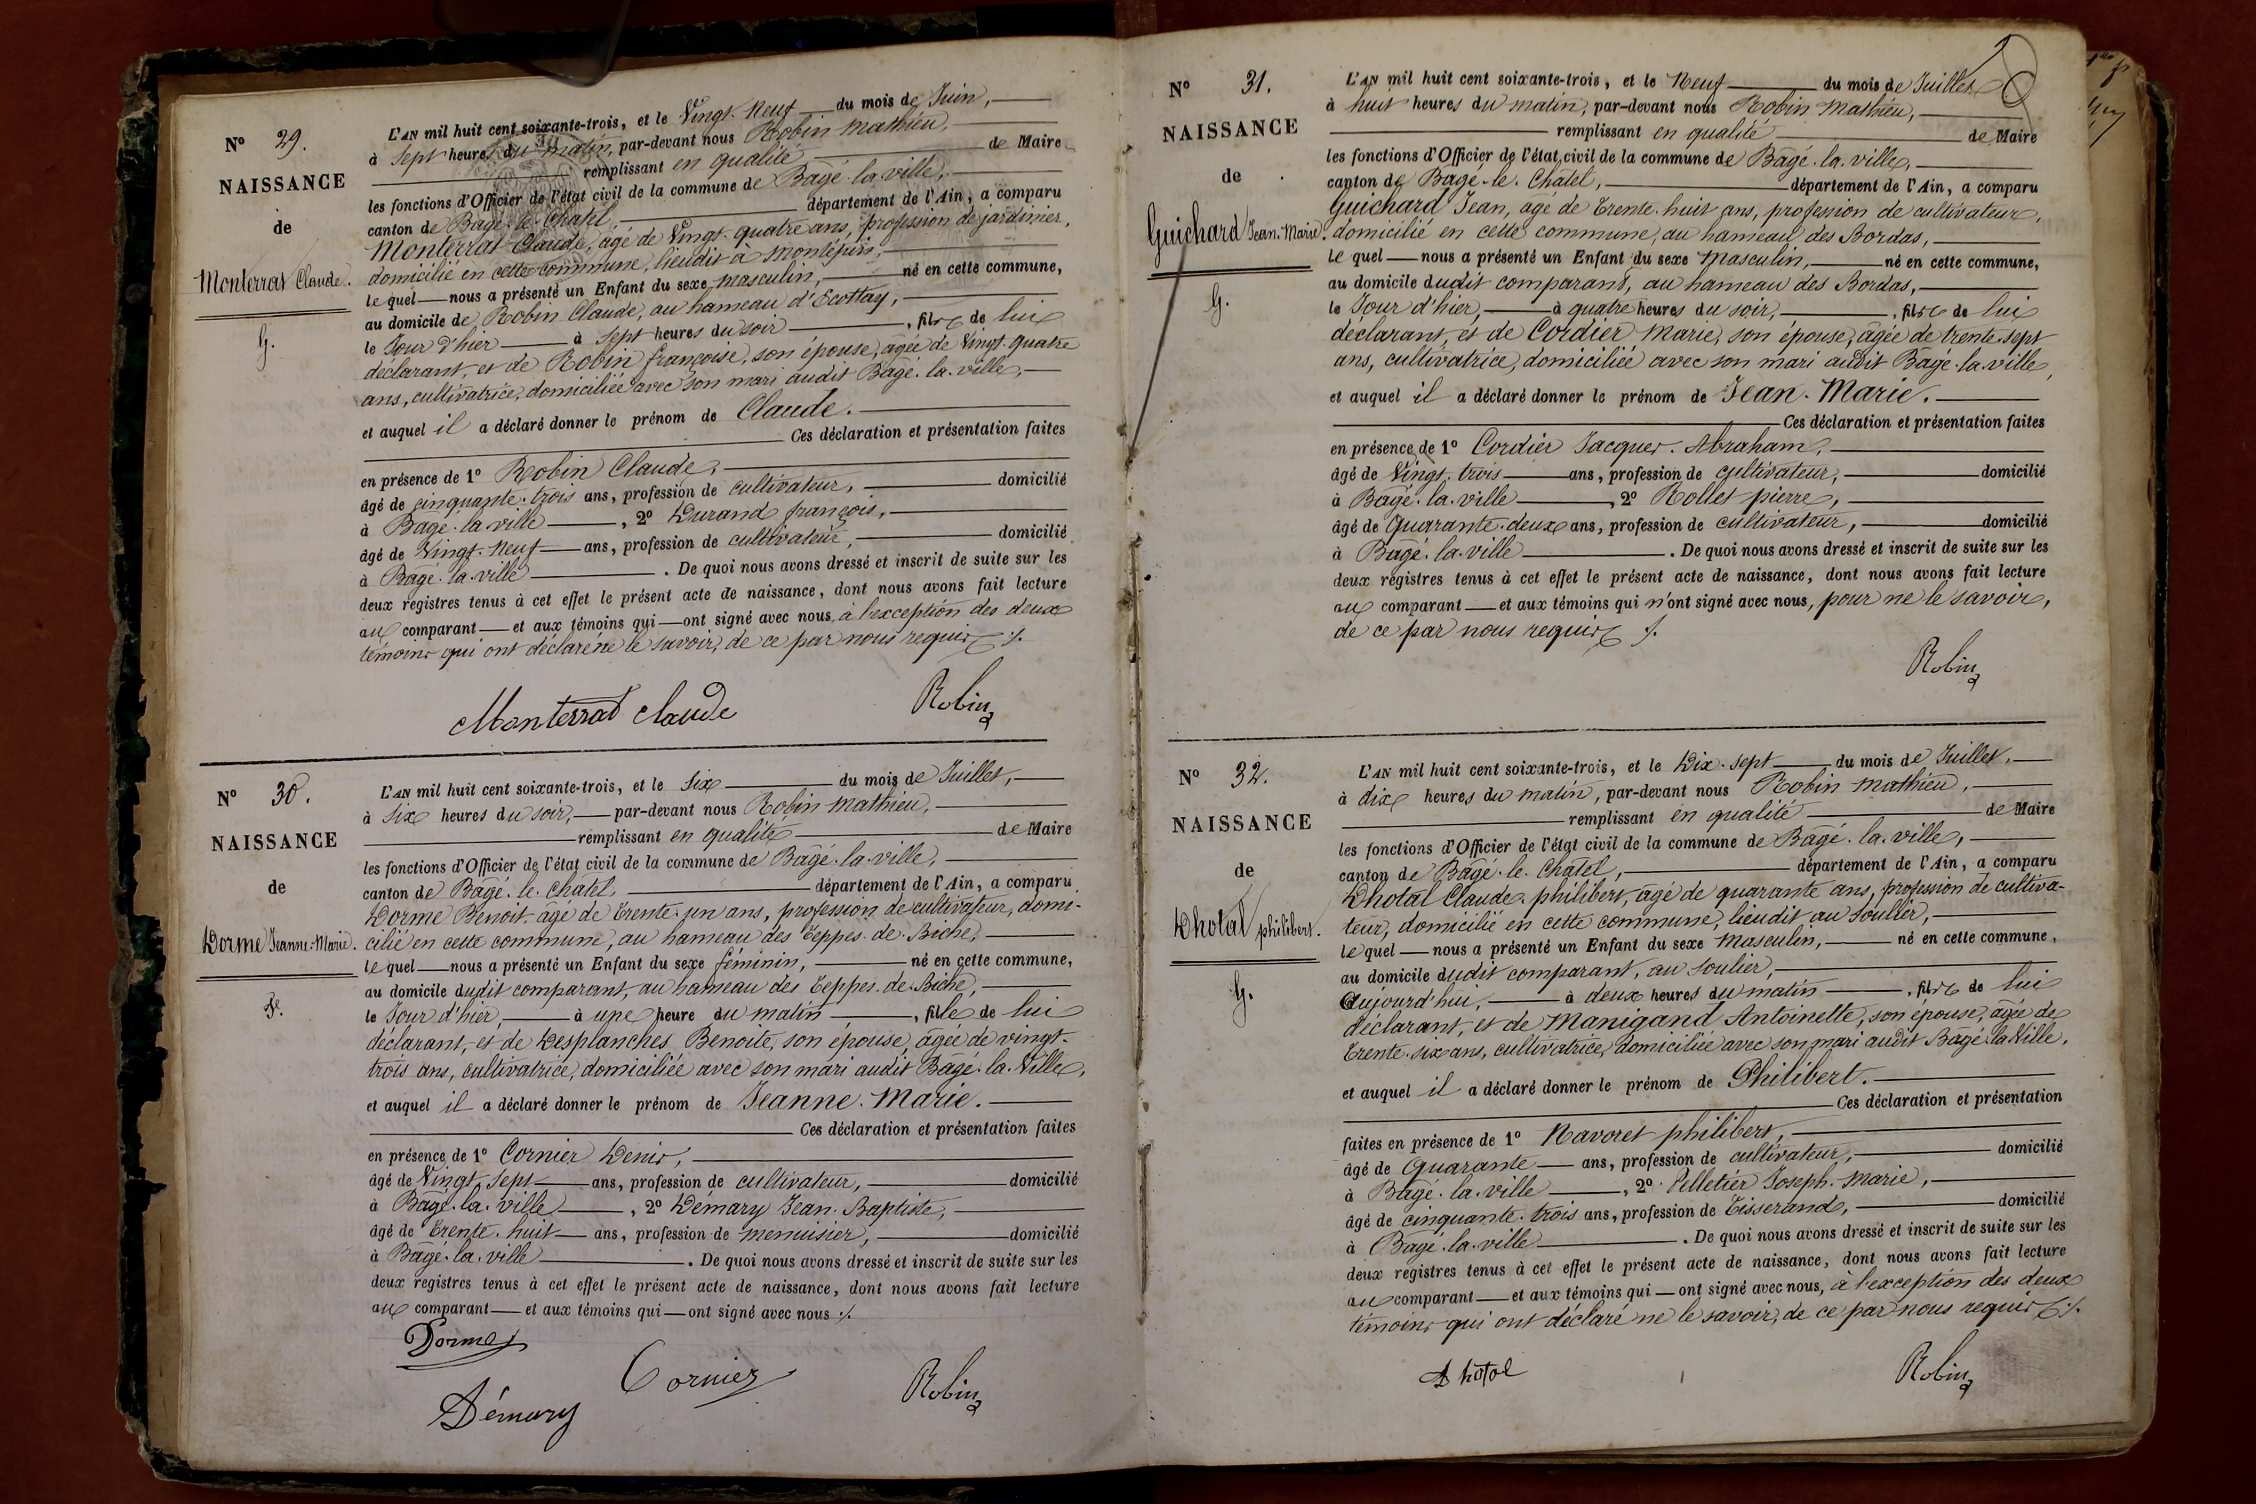 N° 29.
NAISSANCE
de
Monterrat Claude.
G.
L'AN mil huit cent soixante-trois, et le Vingt-Neuf du mois de Juin,
à Sept heures du matin, par-devant nous Robin Mathieu,
remplissant en qualité de Maire
les fonctions d'Officier de l'état civil de la commune de Bâgé-la-ville,
canton de Bâgé-le-Châtel, département de l'Ain, a comparu
Monterrat Claude, âgé de Vingt-quatre ans, profession de jardinier,
domicilié en cette commune, lieudit à Montépin,
le quel nous a présenté un Enfant du sexe masculin, né en cette commune,
au domicile de Robin Claude, au hameau d'Ecottay,
le Jour d'hier à Sept heures du soir, fils de lui
déclarant, et de Robin françoise, son épouse, âgée de Vingt-quatre
ans, cultivatrice, domiciliée avec son mari audit Bâgé-la-ville,
et auquel il a déclaré donner le prénom de Claude.
Ces déclaration et présentation faites
en présence de 1° Robin Claude,
âgé de cinquante-trois ans, profession de cultivateur, domicilié
à Bâgé-la-ville, 2° Durand françois,
âgé de Vingt-Neuf ans, profession de cultivateur, domicilié
à Bâgé-la-ville. De quoi nous avons dressé et inscrit de suite sur les
deux registres tenus à cet effet le présent acte de naissance, dont nous avons fait lecture
au comparant et aux témoins qui ont signé avec nous, à l'exception des deux
témoins qui ont déclaré ne le savoir, de ce par nous requis ./.
Monterrat Claude Robin
N° 30.
NAISSANCE
de
Dorme Jeanne-Marie.
L'AN mil huit cent soixante-trois, et le Six du mois de Juillet,
à Six heures du soir, par-devant nous Robin Mathieu,
remplissant en qualité de Maire
les fonctions d'Officier de l'état civil de la commune de Bâgé-la-ville,
canton de Bâgé-le-Châtel, département de l'Ain, a comparu
Dorme Benoit, âgé de Trente-un ans, profession de cultivateur, domi-
cilié en cette commune, au hameau des Teppes-de-Biche,
le quel nous a présenté un Enfant du sexe féminin, né en cette commune,
au domicile dudit comparant, au hameau des Teppes-de-Biche,
le Jour d'hier, à une heure du matin, fille de lui
déclarant, et de Desplanches Benoite, son épouse, âgée de vingt-
trois ans, cultivatrice, domiciliée avec son mari audit Bâgé-la-Ville,
et auquel il a déclaré donner le prénom de Jeanne-Marie.
Ces déclaration et présentation faites
en présence de 1° Cornier Denis,
âgé de Vingt-Sept ans, profession de cultivateur, domicilié
à Bâgé-la-ville, 2° Démary Jean-Baptiste,
âgé de Trente-huit ans, profession de menuisier, domicilié
à Bâgé-la-ville. De quoi nous avons dressé et inscrit de suite sur les
deux registres tenus à cet effet le présent acte de naissance, dont nous avons fait lecture
au comparant et aux témoins qui ont signé avec nous ./.
Dorme
Cornier Robin
Démary
N° 31.
NAISSANCE
de
Guichard Jean-Marie.
G.
L'AN mil huit cent soixante-trois, et le Neuf du mois de Juillet
à huit heures du matin, par-devant nous Robin Mathieu,
remplissant en qualité de Maire
les fonctions d'Officier de l'état civil de la commune de Bâgé-la-ville,
canton de Bâgé-le-Châtel, département de l'Ain, a comparu
Guichard Jean, âgé de Trente-huit ans, profession de cultivateur,
domicilié en cette commune, au hameau des Bordas,
le quel nous a présenté un Enfant du sexe Masculin, né en cette commune,
au domicile dudit comparant, au hameau des Bordas,
le Jour d'hier, à quatre heures du soir, fils de lui
déclarant, et de Cordier Marie, son épouse, âgée de trente-sept
ans, cultivatrice, domiciliée avec son mari audit Bâgé-la-ville,
et auquel il a déclaré donner le prénom de Jean-Marie.
Ces déclaration et présentation faites
en présence de 1° Cordier Jacques-Abraham,
âgé de Vingt-trois ans, profession de cultivateur, domicilié
à Bâgé-la-ville, 2° Rollet pierre,
âgé de Quarante-deux ans, profession de cultivateur, domicilié
à Bâgé-la-ville. De quoi nous avons dressé et inscrit de suite sur les
deux registres tenus à cet effet le présent acte de naissance, dont nous avons fait lecture
au comparant et aux témoins qui n'ont signé avec nous, pour ne le savoir,
de ce par nous requis ./.
Robin
N° 32.
NAISSANCE
de
Dhotal philibert.
G.
L'AN mil huit cent soixante-trois, et le Dix-Sept du mois de Juillet,
à dix heures du matin, par-devant nous Robin Mathieu,
remplissant en qualité de Maire
les fonctions d'Officier de l'état civil de la commune de Bâgé-la-ville,
canton de Bâgé-le-Châtel, département de l'Ain, a comparu
Dhotal Claude-philibert, âgé de quarante ans, profession de cultiva-
teur, domicilié en cette commune, lieudit au Soulier,
le quel nous a présenté un Enfant du sexe Masculin, né en cette commune,
au domicile dudit comparant, au Soulier,
Aujourd'hui, à deux heures du matin, fils de lui
déclarant, et de Manigand Antoinette, son épouse, âgée de
Trente-six ans, cultivatrice, domiciliée avec son mari audit Bâgé-la-Ville,
et auquel il a déclaré donner le prénom de Philibert.
Ces déclaration et présentation
faites en présence de 1° Navoret philibert,
âgé de Quarante ans, profession de cultivateur, domicilié
à Bâgé-la-ville, 2° Pelletier Joseph-Marie,
âgé de cinquante-trois ans, profession de Tisserand, domicilié
à Bâgé-la-ville. De quoi nous avons dressé et inscrit de suite sur les
deux registres tenus à cet effet le présent acte de naissance, dont nous avons fait lecture
au comparant et aux témoins qui ont signé avec nous, à l'exception des deux
témoins qui ont déclaré ne le savoir, de ce par nous requis ./.
Dhotal Robin